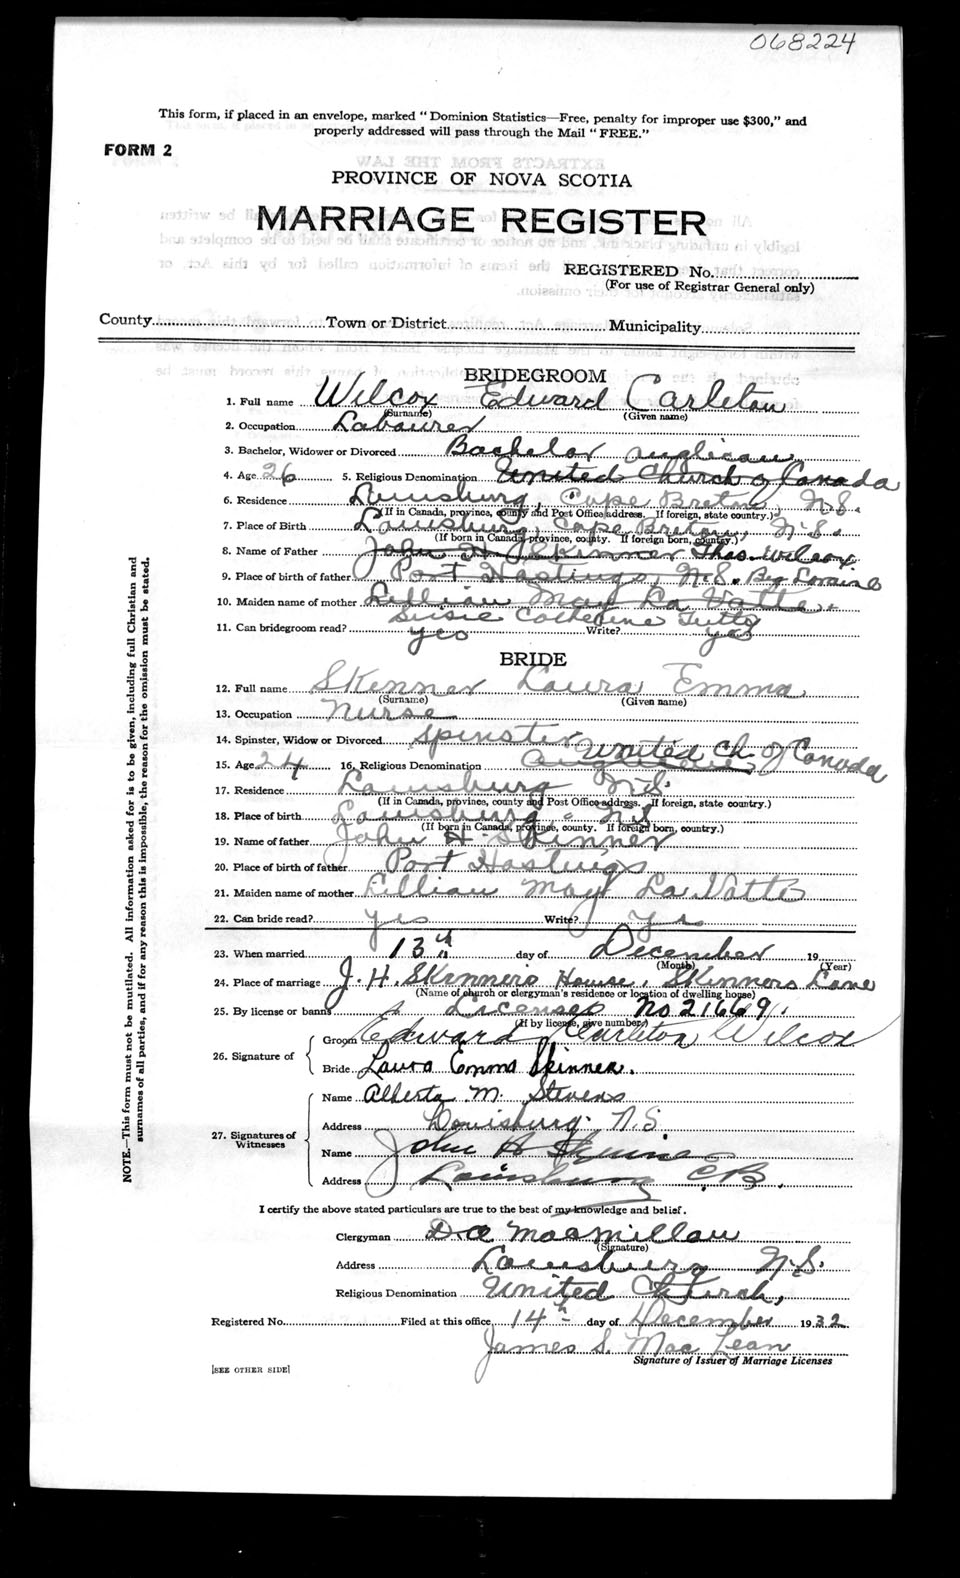 068224
This form, if placed in an envelope, marked "Dominion Statistics—Free, penalty for improper use $300," and
properly addressed will pass through the Mail "FREE."
FORM 2
PROVINCE OF NOVA SCOTIA
MARRIAGE REGISTER
REGISTERED No.
(For use of Registrar General only)
County Town or District Municipality
BRIDEGROOM
1. Full name Wilcox Edward Carleton
(Surname) (Given name)
2. Occupation Labourer
3. Bachelor, Widower or Divorced Bachelor Anglican
4. Age 26 5. Religious Denomination United Church of Canada
6. Residence Louisburg, Cape Breton, N.S.
(If in Canada, province, county and Post Office address. If foreign, state country.)
7. Place of Birth Louisburg, Cape Breton, N.S.
(If born in Canada, province, county. If foreign born, country.)
8. Name of Father John H. Skinner Thos. Wilcox
9. Place of birth of father Port Hastings, N.S. Big Loraine
10. Maiden name of mother Lillian May La Vatte.
Susie Catherine Tutty
11. Can bridegroom read? yes Write? yes
BRIDE
12. Full name Skinner Laura Emma
(Surname) (Given name)
13. Occupation Nurse
14. Spinster, Widow or Divorced Spinster
United Ch. of Canada
15. Age 24 16. Religious Denomination Anglican
17. Residence Louisburg N.S.
(If in Canada, province, county and Post Office address. If foreign, state country.)
18. Place of birth Louisburg N.S.
(If born in Canada, province, county. If foreign born, country.)
19. Name of father John H. Skinner
20. Place of birth of father Port Hastings
21. Maiden name of mother Lillian May La Vatte
22. Can bride read? yes Write? yes
23. When married 13th day of December 19
(Month) (Year)
24. Place of marriage J. H. Skinner's House, Skinners Lane
(Name of church or clergyman's residence or location of dwelling house)
25. By license or banns License No 21669.
(If by license, give number)
26. Signature of
Groom Edward Carleton Wilcox
Bride Laura Emma Skinner.
27. Signatures of Witnesses
Name Alberta M. Stevens
Address Louisburg. N.S.
Name John H Skinner
Address Louisburg C.B.
I certify the above stated particulars are true to the best of my knowledge and belief.
Clergyman D. A. MacMillan
(Signature)
Address Louisburg N.S.
Religious Denomination United Church,
Registered No. Filed at this office 14th day of December 1932
James S. MacLean
Signature of Issuer of Marriage Licenses
[SEE OTHER SIDE]
NOTE.—This form must not be mutilated. All information asked for is to be given, including full Christian and
surnames of all parties, and if for any reason this is impossible, the reason for the omission must be stated.